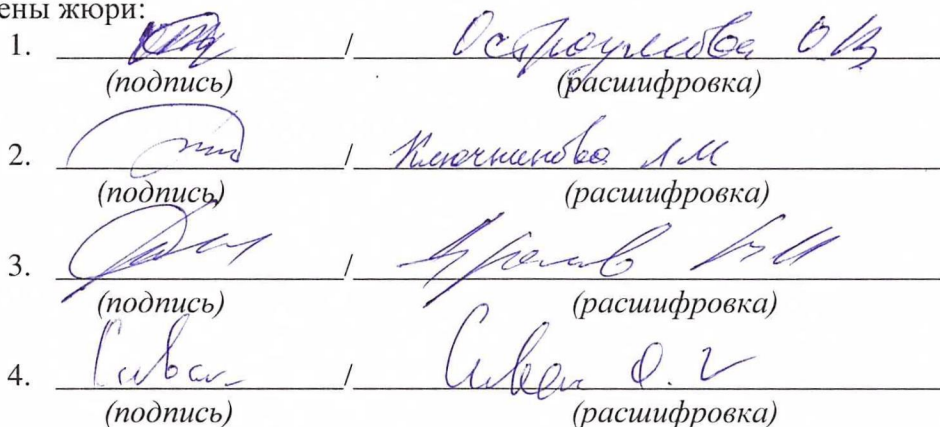 ены жюри:
1. / Остроумова О В
(подпись) (расшифровка)
2. / Ключникова Л М
(подпись) (расшифровка)
3. /
(подпись) (расшифровка)
4. Сиван / Сиван О. В
(подпись) (расшифровка)